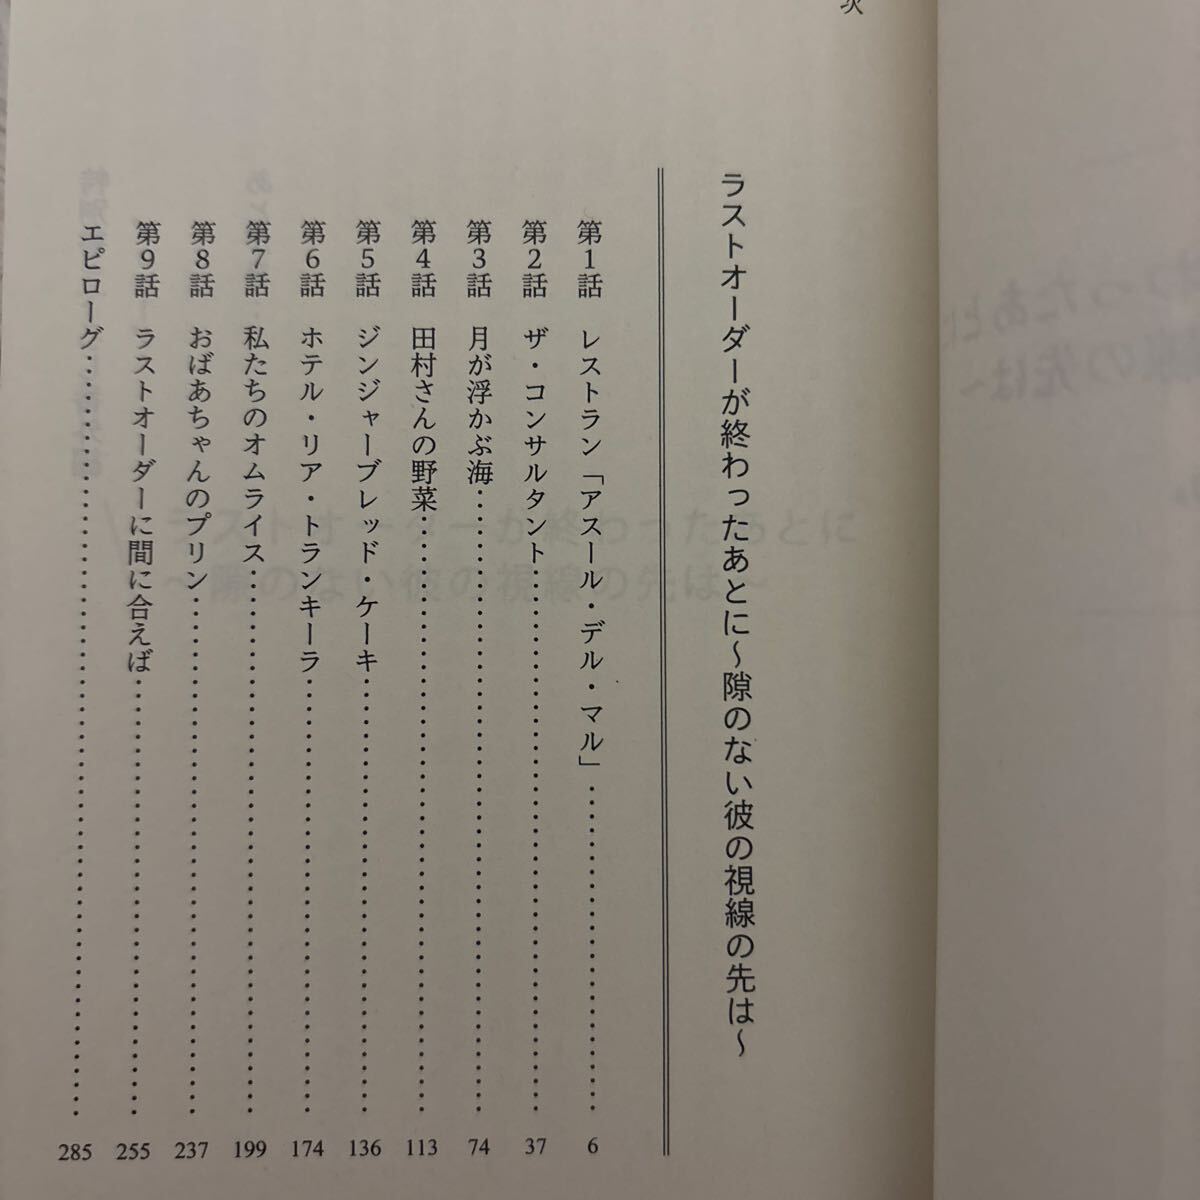 次
ラストオーダーが終わったあとに～隙のない彼の視線の先は～
第1話 レストラン「アスール・デル・マル」…… 6
第2話 ザ・コンサルタント…… 37
第3話 月が浮かぶ海…… 74
第4話 田村さんの野菜…… 113
第5話 ジンジャーブレッド・ケーキ…… 136
第6話 ホテル・リア・トランキーラ…… 174
第7話 私たちのオムライス…… 199
第8話 おばあちゃんのプリン…… 237
第9話 ラストオーダーに間に合えば…… 255
エピローグ…… 285
ラストオーダーが終わったあとに
～隙のない彼の視線の先は～